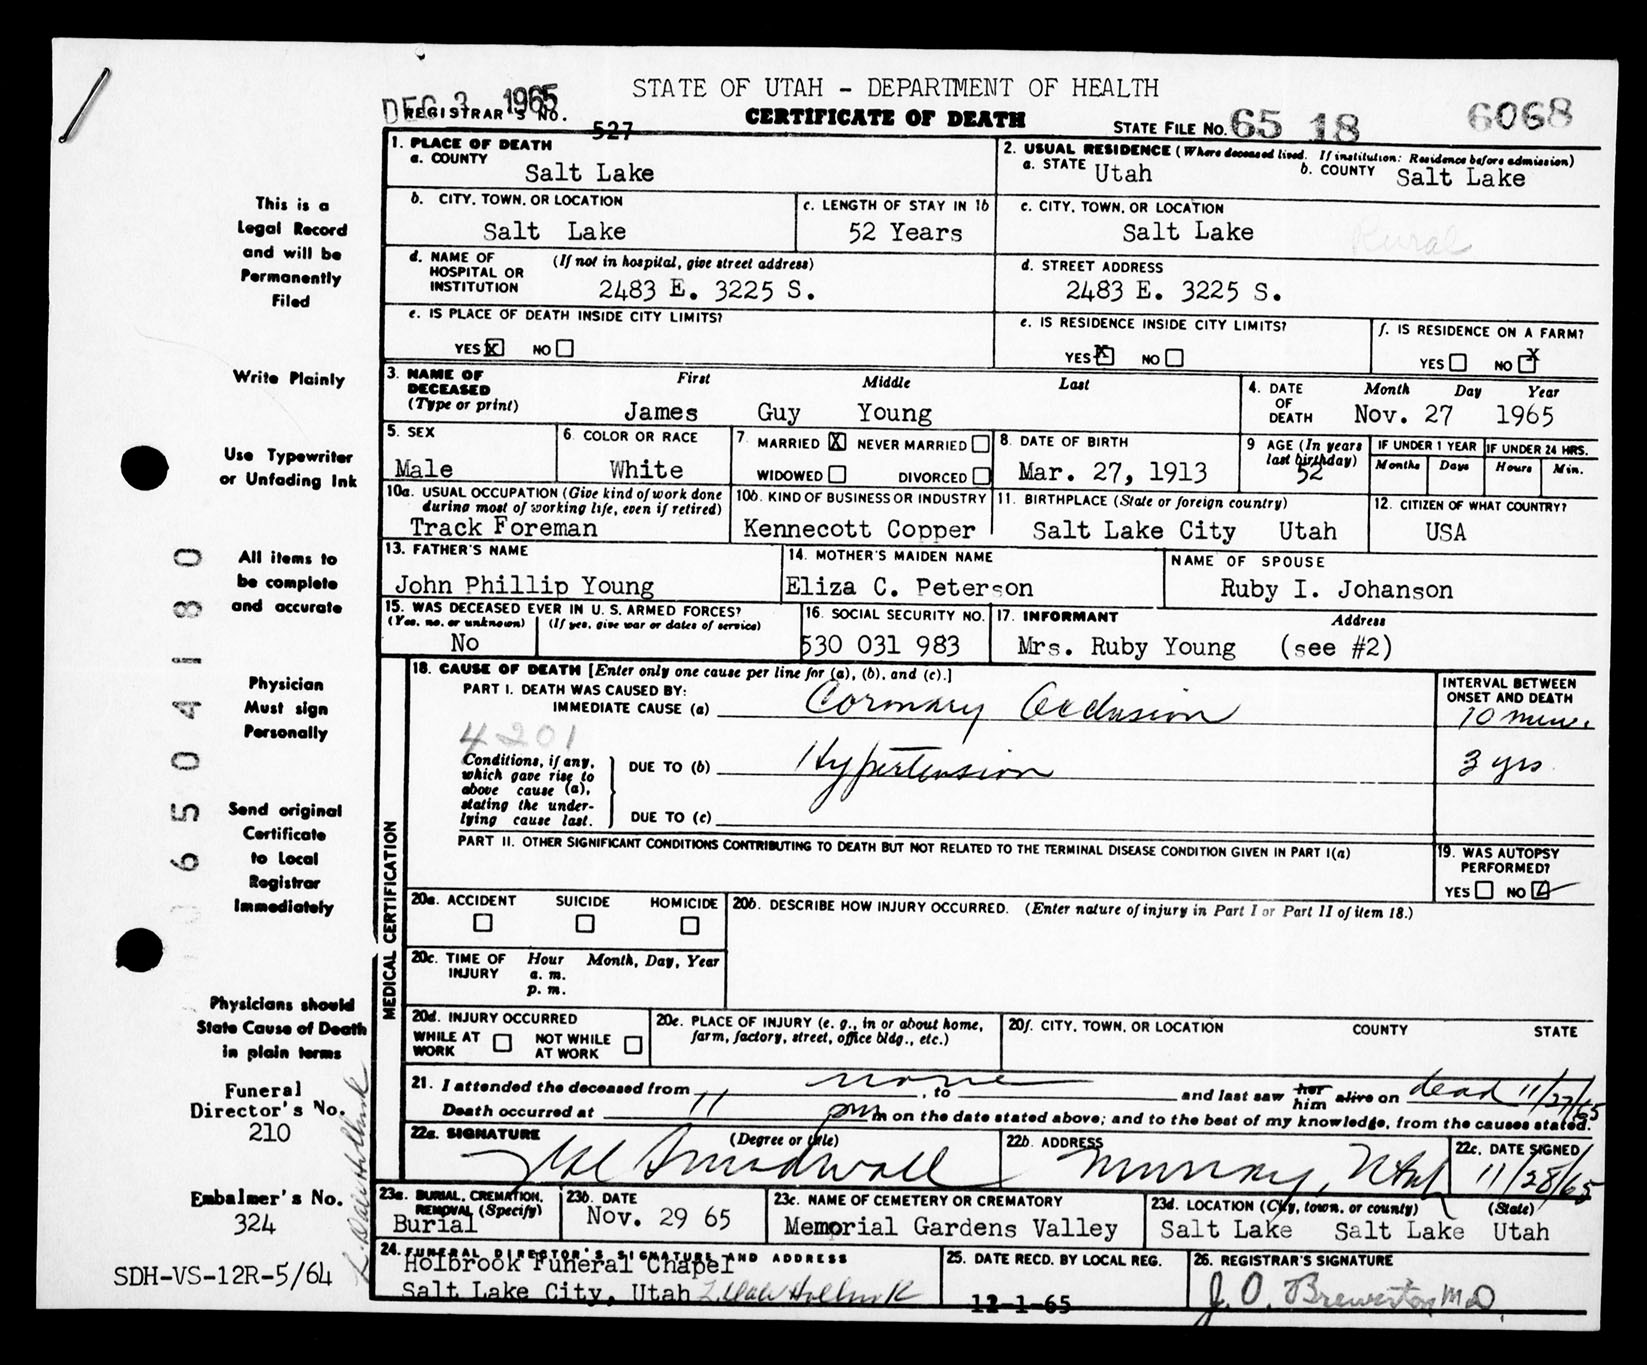 STATE OF UTAH - DEPARTMENT OF HEALTH
DEC 3 1965
REGISTRAR'S NO. 527
CERTIFICATE OF DEATH
STATE FILE NO. 65 18 6068
1. PLACE OF DEATH
a. COUNTY
Salt Lake
2. USUAL RESIDENCE (Where deceased lived. If institution: Residence before admission)
a. STATE Utah b. COUNTY Salt Lake
b. CITY, TOWN, OR LOCATION
Salt Lake
c. LENGTH OF STAY IN 1b
52 Years
c. CITY, TOWN, OR LOCATION
Salt Lake Rural
d. NAME OF HOSPITAL OR INSTITUTION (If not in hospital, give street address)
2483 E. 3225 S.
d. STREET ADDRESS
2483 E. 3225 S.
e. IS PLACE OF DEATH INSIDE CITY LIMITS?
YES X NO
e. IS RESIDENCE INSIDE CITY LIMITS?
YES X NO
f. IS RESIDENCE ON A FARM?
YES NO X
3. NAME OF DECEASED (Type or print)
First Middle Last
James Guy Young
4. DATE OF DEATH
Month Day Year
Nov. 27 1965
5. SEX
Male
6. COLOR OR RACE
White
7. MARRIED X NEVER MARRIED
WIDOWED DIVORCED
8. DATE OF BIRTH
Mar. 27, 1913
9 AGE (In years last birthday)
52
IF UNDER 1 YEAR
Months Days
IF UNDER 24 HRS.
Hours Min.
10a. USUAL OCCUPATION (Give kind of work done during most of working life, even if retired)
Track Foreman
10b. KIND OF BUSINESS OR INDUSTRY
Kennecott Copper
11. BIRTHPLACE (State or foreign country)
Salt Lake City Utah
12. CITIZEN OF WHAT COUNTRY?
USA
13. FATHER'S NAME
John Phillip Young
14. MOTHER'S MAIDEN NAME
Eliza C. Peterson
NAME OF SPOUSE
Ruby I. Johanson
15. WAS DECEASED EVER IN U. S. ARMED FORCES?
(Yes, no, or unknown) (If yes, give war or dates of service)
No
16. SOCIAL SECURITY NO.
530 031 983
17. INFORMANT Address
Mrs. Ruby Young (see #2)
MEDICAL CERTIFICATION
18. CAUSE OF DEATH [Enter only one cause per line for (a), (b), and (c).]
PART I. DEATH WAS CAUSED BY:
IMMEDIATE CAUSE (a) Coronary Occlusion
INTERVAL BETWEEN ONSET AND DEATH
10
4201
Conditions, if any, which gave rise to above cause (a), stating the underlying cause last.
DUE TO (b) Hypertension
3 yrs
DUE TO (c)
PART II. OTHER SIGNIFICANT CONDITIONS CONTRIBUTING TO DEATH BUT NOT RELATED TO THE TERMINAL DISEASE CONDITION GIVEN IN PART I(a)
19. WAS AUTOPSY PERFORMED?
YES NO
20a. ACCIDENT SUICIDE HOMICIDE
20b. DESCRIBE HOW INJURY OCCURRED. (Enter nature of injury in Part I or Part II of item 18.)
20c. TIME OF INJURY
Hour Month, Day, Year
a. m.
p. m.
20d. INJURY OCCURRED
WHILE AT WORK NOT WHILE AT WORK
20e. PLACE OF INJURY (e. g., in or about home, farm, factory, street, office bldg., etc.)
20f. CITY, TOWN, OR LOCATION COUNTY STATE
21. I attended the deceased from none , to and last saw her him alive on dead 11/27/65
Death occurred at 11 pm m on the date stated above; and to the best of my knowledge, from the causes stated.
22a. SIGNATURE (Degree or title)
22b. ADDRESS
Murray, Utah
22c. DATE SIGNED
11/28/65
23a. BURIAL, CREMATION, REMOVAL (Specify)
Burial
23b. DATE
Nov. 29 65
23c. NAME OF CEMETERY OR CREMATORY
Memorial Gardens Valley
23d. LOCATION (City, town, or county) (State)
Salt Lake Salt Lake Utah
24. FUNERAL DIRECTOR'S SIGNATURE AND ADDRESS
Holbrook Funeral Chapel
Salt Lake City, Utah
25. DATE RECD. BY LOCAL REG.
12-1-65
26. REGISTRAR'S SIGNATURE
J. O. Brewerton MD.
This is a
Legal Record
and will be
Permanently
Filed
Write Plainly
Use Typewriter
or Unfading Ink
All items to
be complete
and accurate
Physician
Must sign
Personally
Send original
Certificate
to Local
Registrar
Immediately
Physicians should
State Cause of Death
in plain terms
Funeral
Director's No.
210
Embalmer's No.
324
SDH-VS-12R-5/64